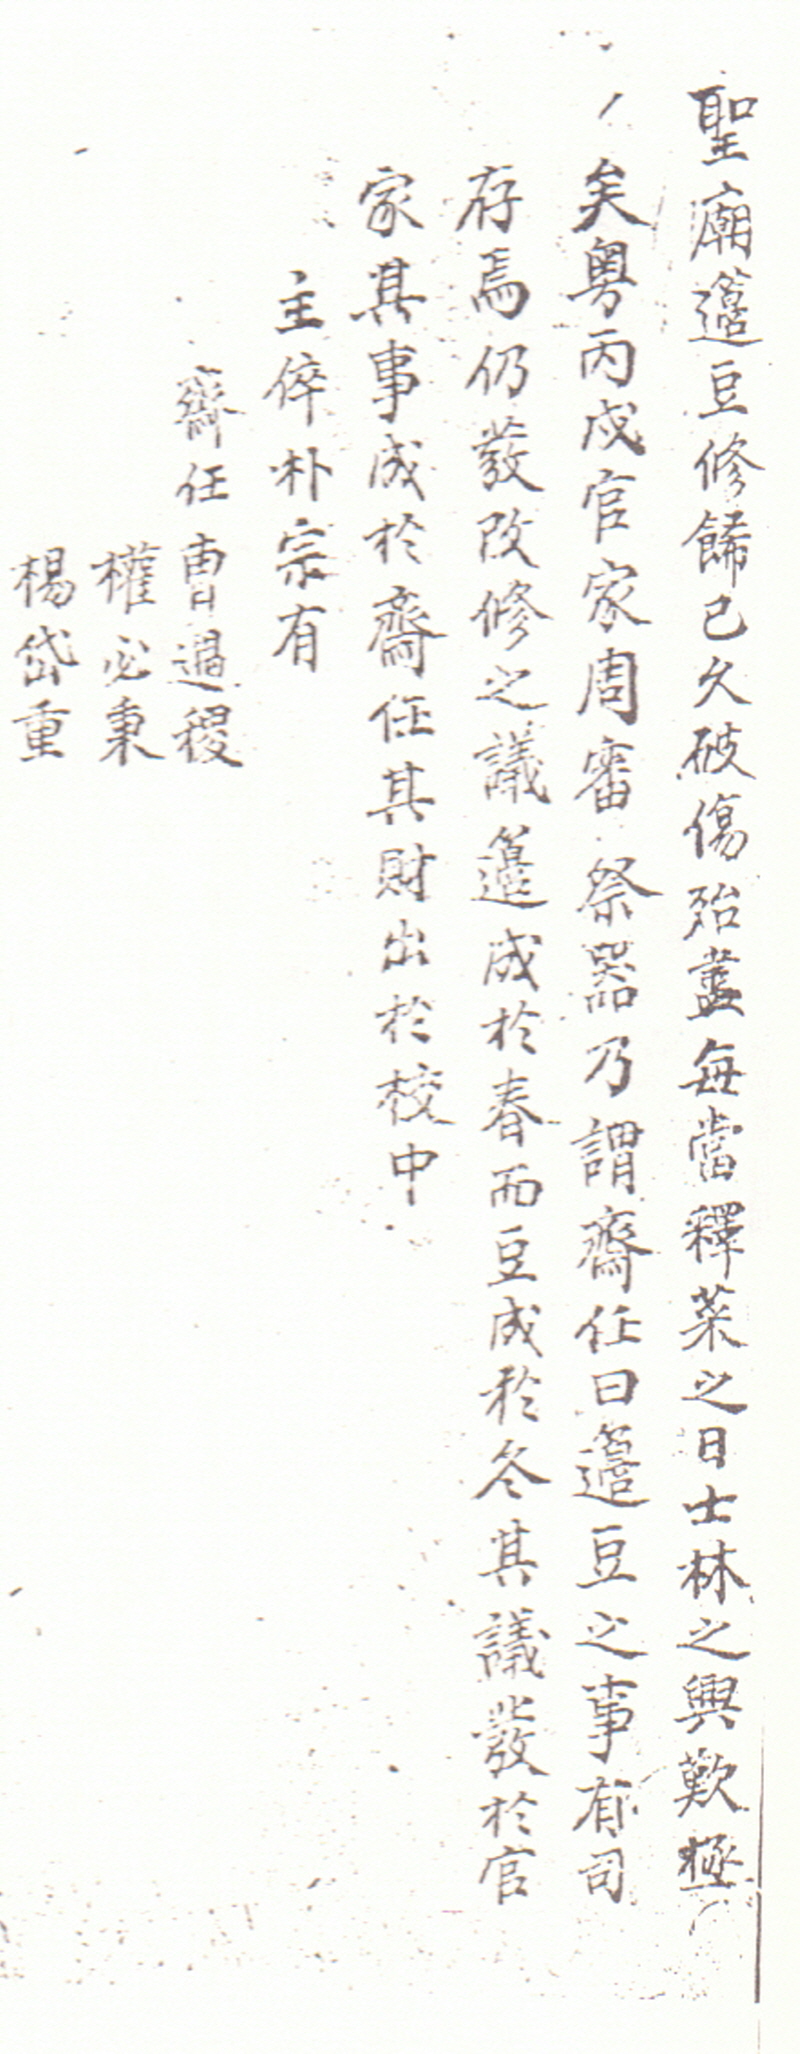 聖廟籩豆修餙已久破傷殆盡每當釋菜之日士林之興歎極
矣粤丙戌官家周審祭器乃謂齋任曰籩豆之事有司
存焉仍發改修之議籩成於春而豆成於冬其議發於官
家其事成於齋任其財出於校中
主倅朴宗有
齋任曹逼稷
權必秉
楊岱重